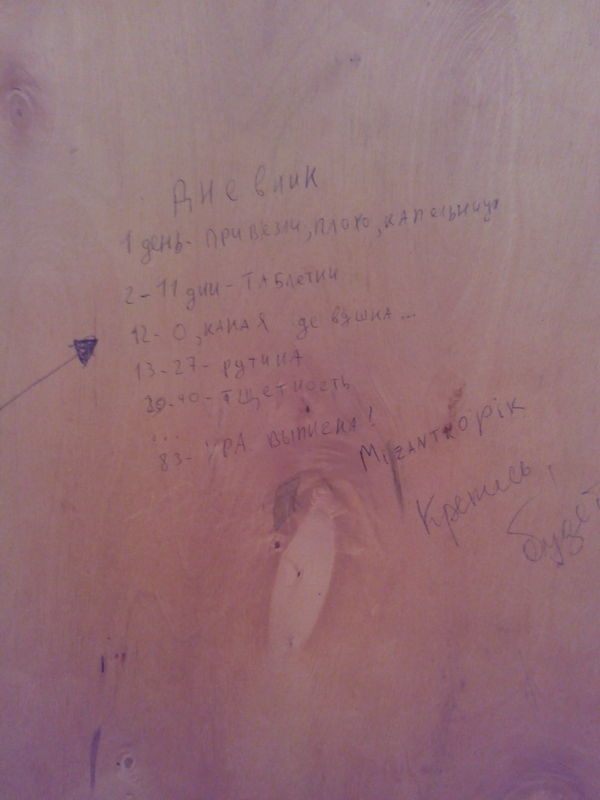 Дневник
1 день - привезли, плохо, капельница
2-11 дни - таблетки
12 - о, какая девушка...
13-27 - рутина
39-40 - тщетность
...
83 - ура выписка!
Mizantropik
Крепись,
будет